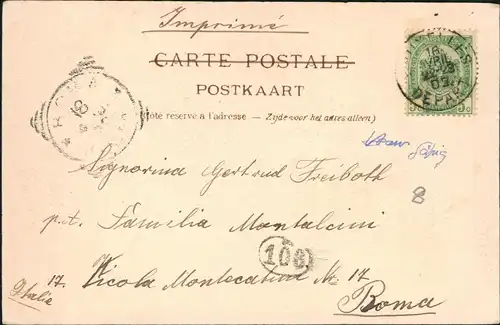 Imprimé
CARTE POSTALE
POSTKAART
Côté réservé à l'adresse. — Zijde voor het adres alleen.)
ELLES
DEPART
ROMA
Signorina Gertrud Freiboth
8
p.t. Familia Montalcini
106
17. Vicola Montecatini Nr. 17
Italia
Roma